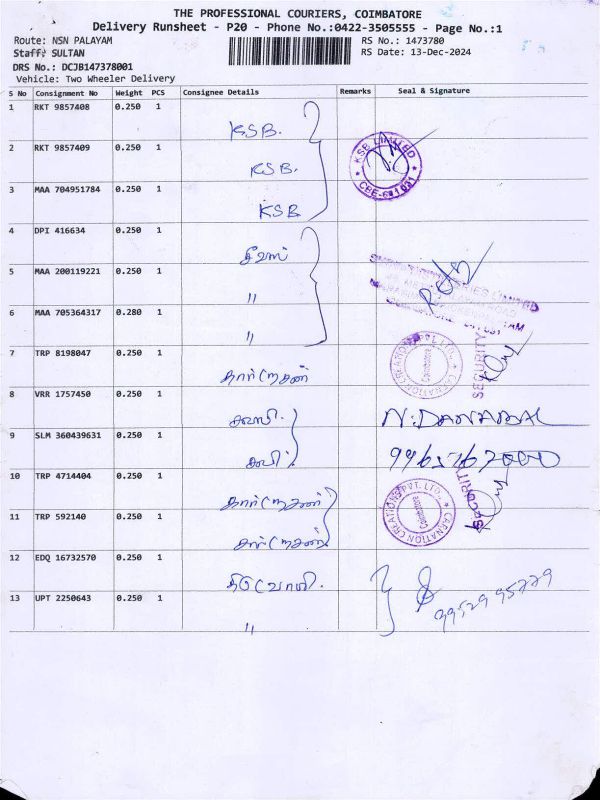 THE PROFESSIONAL COURIERS, COIMBATORE
Delivery Runsheet - P20 - Phone No.:0422-3505555 - Page No.:1
Route: NSN PALAYAM
RS No.: 1473780
Staff: SULTAN
RS Date: 13-Dec-2024
DRS No.: DCJB147378001
Vehicle: Two Wheeler Delivery
S No Consignment No Weight PCS Consignee Details Remarks Seal & Signature
1 RKT 9857408 0.250 1
KSB.
2 RKT 9857409 0.250 1
KSB.
KSB LIMITED
CBE-641 031
3 MAA 704951784 0.250 1
KSB
4 DPI 416634 0.250 1
5 MAA 200119221 0.250 1
"
6 MAA 705364317 0.280 1
"
7 TRP 8198047 0.250 1
கார்னேசன்
CARNATION CREATIONS PVT. LTD.,
Coimbatore
SECURITY
8 VRR 1757450 0.250 1
N. DANABAL
9 SLM 360439631 0.250 1
9965167000
10 TRP 4714404 0.250 1
கார்னேசன்
CARNATION CREATIONS PVT. LTD.,
Coimbatore
SECURITY
11 TRP 592140 0.250 1
கார்னேசன்
12 EDQ 16732570 0.250 1
13 UPT 2250643 0.250 1
"